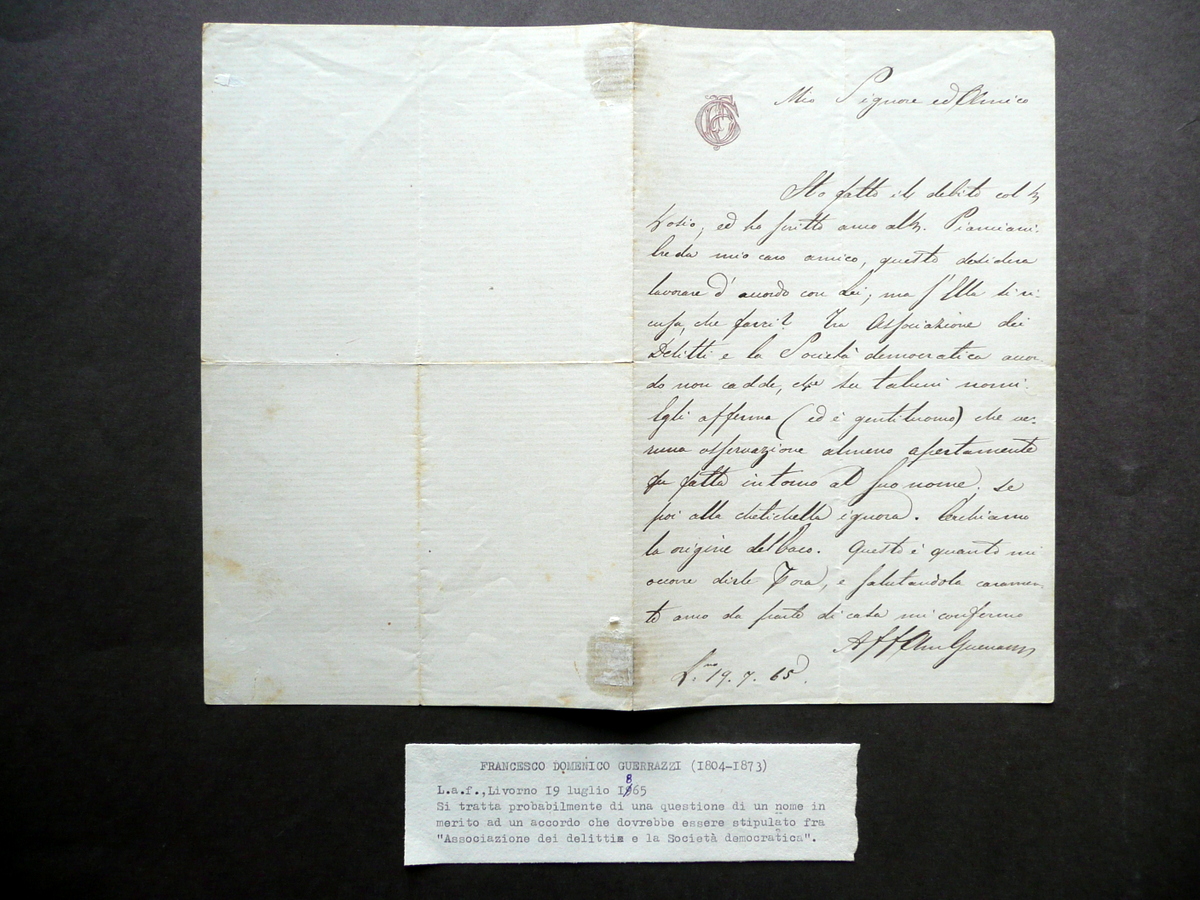 Mio Signore ed Amico
Ho fatto il debito col
ed ho scritto anco al Pianciani.
Creda mio caro amico, questo desidera
lavorare d'accordo con Lei; ma s'Ella si ri-
cusa, che farci? Tra Associazione dei
Delitti e la Società democratica accor-
do non cadde, che su taluni nomi.
Egli afferma (ed è gentiluomo) che ve-
runa osservazione almeno apertamente
fu fatta intorno al suo nome; se
poi alla chetichella ignora. Cerchiamo
la origine del Baco. Questo è quanto mi
occorre dirle ora, e salutandola caramen-
te anco da parte di casa mi confermo
Aff Am Guerrazzi
L.no 19. 7. 65.
FRANCESCO DOMENICO GUERRAZZI (1804-1873)
L.a.f.,Livorno 19 luglio 1865
Si tratta probabilmente di una questione di un nome in
merito ad un accordo che dovrebbe essere stipulato fra
"Associazione dei delitti e la Società democratica".